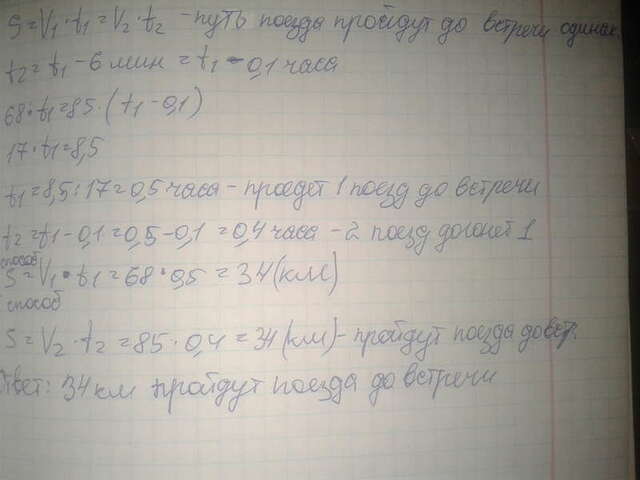 S=V₁·t₁=V₂·t₂ -путь поезда пройдут до встречи одинак.
t₂=t₁-6 мин=t₁-0,1 часа
68·t₁=85·(t₁-0,1)
17·t₁=8,5
t₁=8,5:17=0,5 часа - проедет 1 поезд до встречи
t₂=t₁-0,1=0,5-0,1=0,4 часа -2 поезд догонет 1
способ
S=V₁·t₁=68·0,5=34(км)
способ
S=V₂·t₂=85·0,4=34(км)-пройдут поезда до вст.
Ответ: 34 км пройдут поезда до встречи